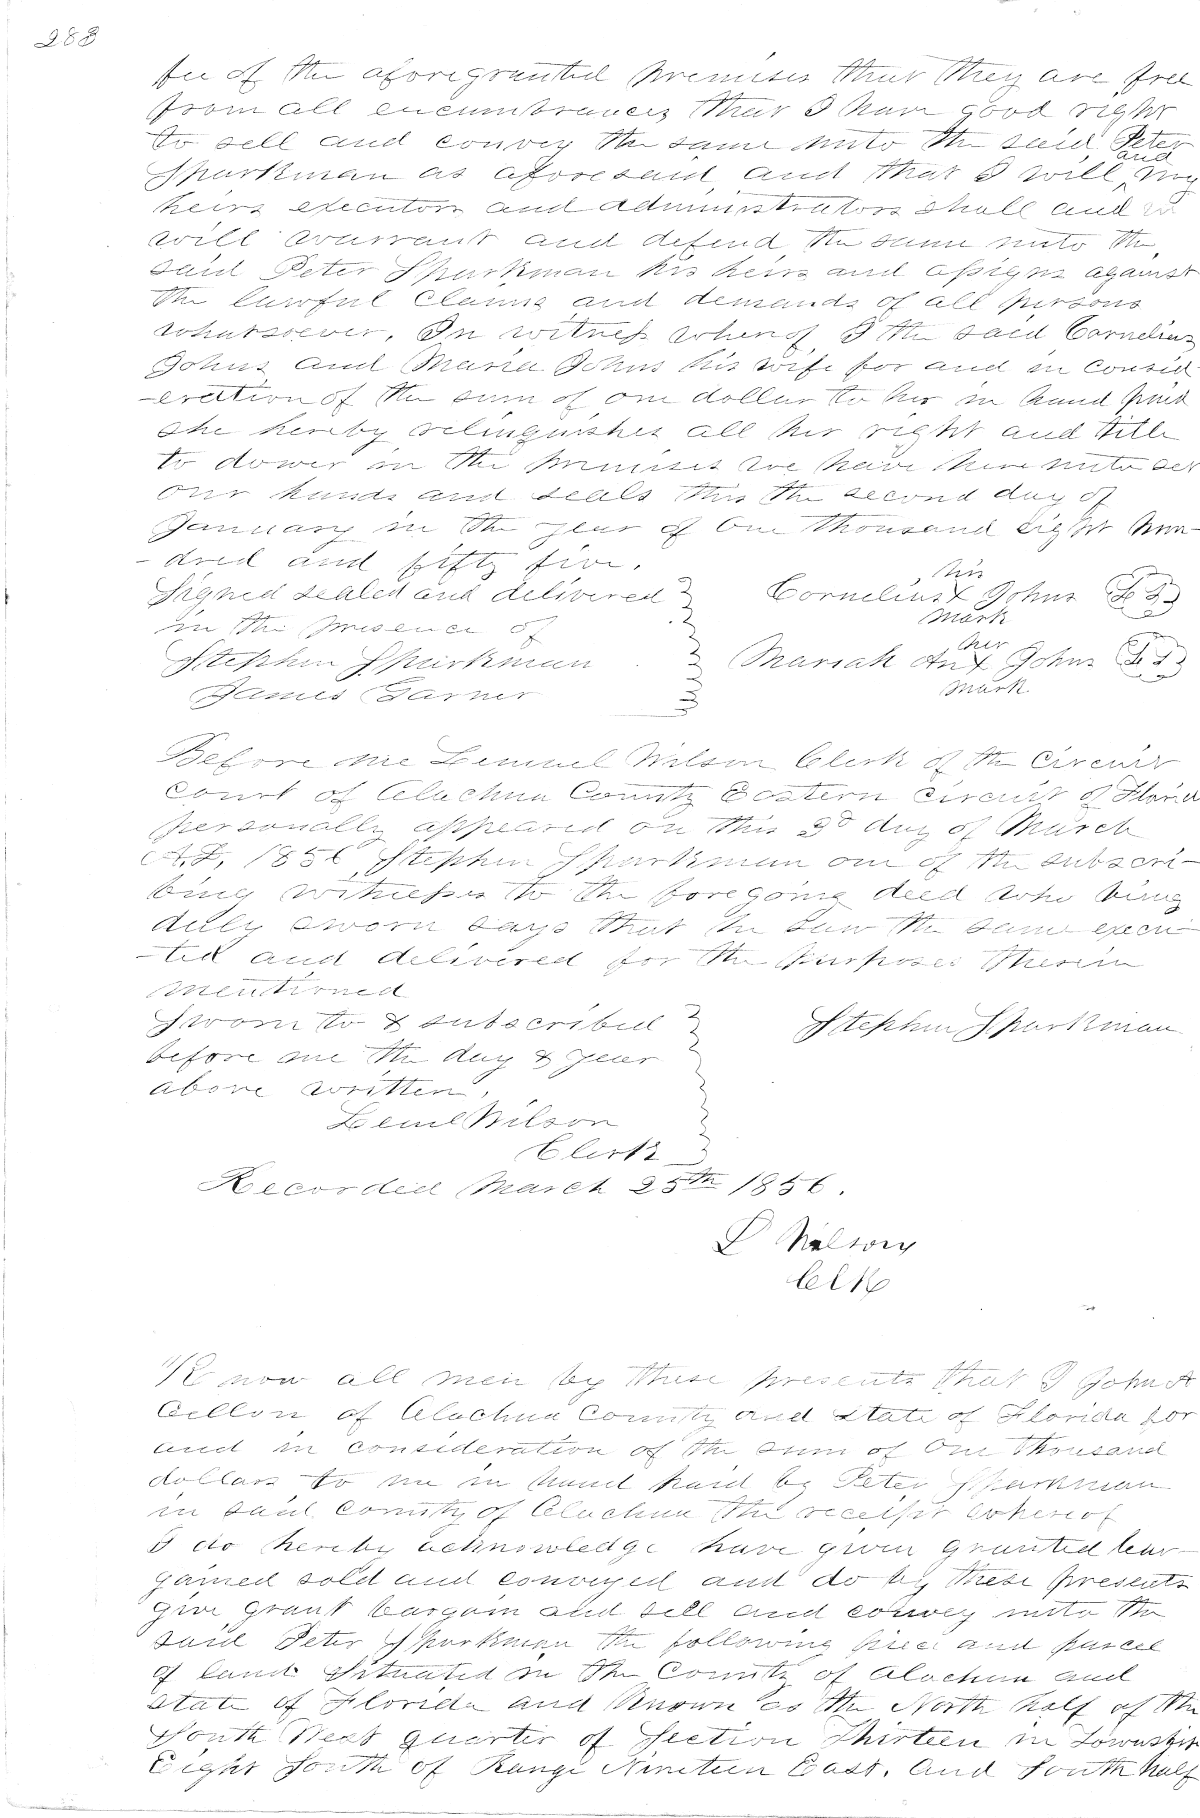 283
fee of the aforegranted premises that they are free
from all encumbrances, that I have good right
to sell and convey the same unto the said Peter
Sparkman as aforesaid and that I will, and my
heirs executors and administrators shall and
will warrant and defend the same unto the
said Peter Sparkman his heirs and assigns against
the lawful claims and demands of all persons
whatsoever. In witness whereof I the said Cornelius
Johns and Maria Johns his wife for and in consid-
-eration of the sum of one dollar to her in hand paid
she hereby relinquishes all her right and title
to dower in the premises we have here unto set
our hands and seals this the second day of
January in the year of One thousand Eight hun-
-dred and fifty five.
Signed sealed and delivered
in the presence of
Stephen Sparkman
James Garner
Cornelius his X mark Johns LS
Mariah An her X mark Johns LS
Before me Lemuel Wilson Clerk of the Circuit
Court of Alachua County Eastern Circuit of Florida
personally appeared on this 3d day of March
A.D. 1856 Stephen Sparkman one of the subscri-
bing witnesses to the foregoing deed who being
duly sworn says that he saw the same execu-
-ted and delivered for the purposes therein
mentioned
Sworn to & subscribed
before me the day & year
above written.
Leml Wilson
Clerk
Stephen Sparkman
Recorded March 25th 1856.
L Wilson
Clk
Know all men by these presents that I John A
Cellon of Alachua County and State of Florida for
and in consideration of the sum of One thousand
dollars to me in hand paid by Peter Sparkman
in said County of Alachua the receipt whereof
I do hereby acknowledge have given granted bar-
gained sold and conveyed and do by these presents
give grant bargain and sell and convey unto the
said Peter Sparkman the following piece and parcel
of land situated in the County of Alachua and
State of Florida and known as the North half of the
South West quarter of Section Thirteen in Township
Eight South of Range Nineteen East. and South half